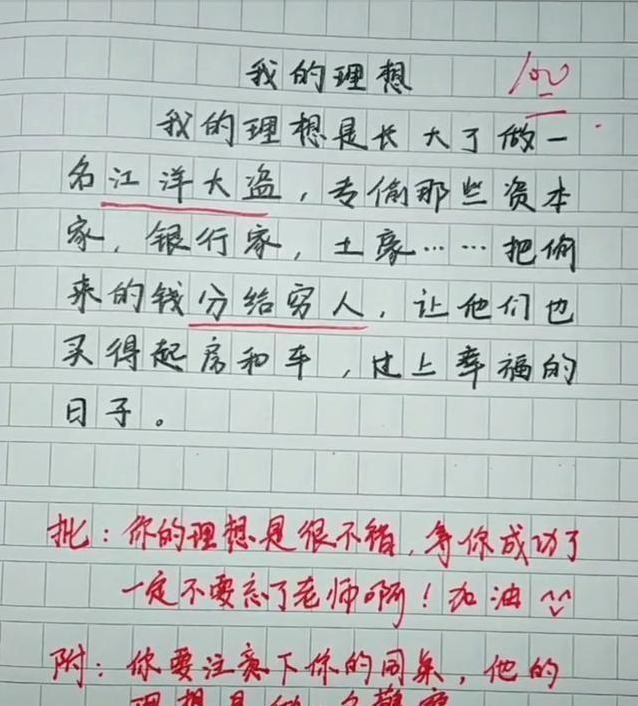 我的理想 100
我的理想是长大了做一
名江洋大盗，专偷那些资本
家，银行家，土豪……把偷
来的钱分给穷人，让他们也
买得起房和车，过上幸福的
日子。
批：你的理想是很不错，等你成功了
一定不要忘了老师啊！加油
附：你要注意下你的同桌，他的
理想是做一名警察